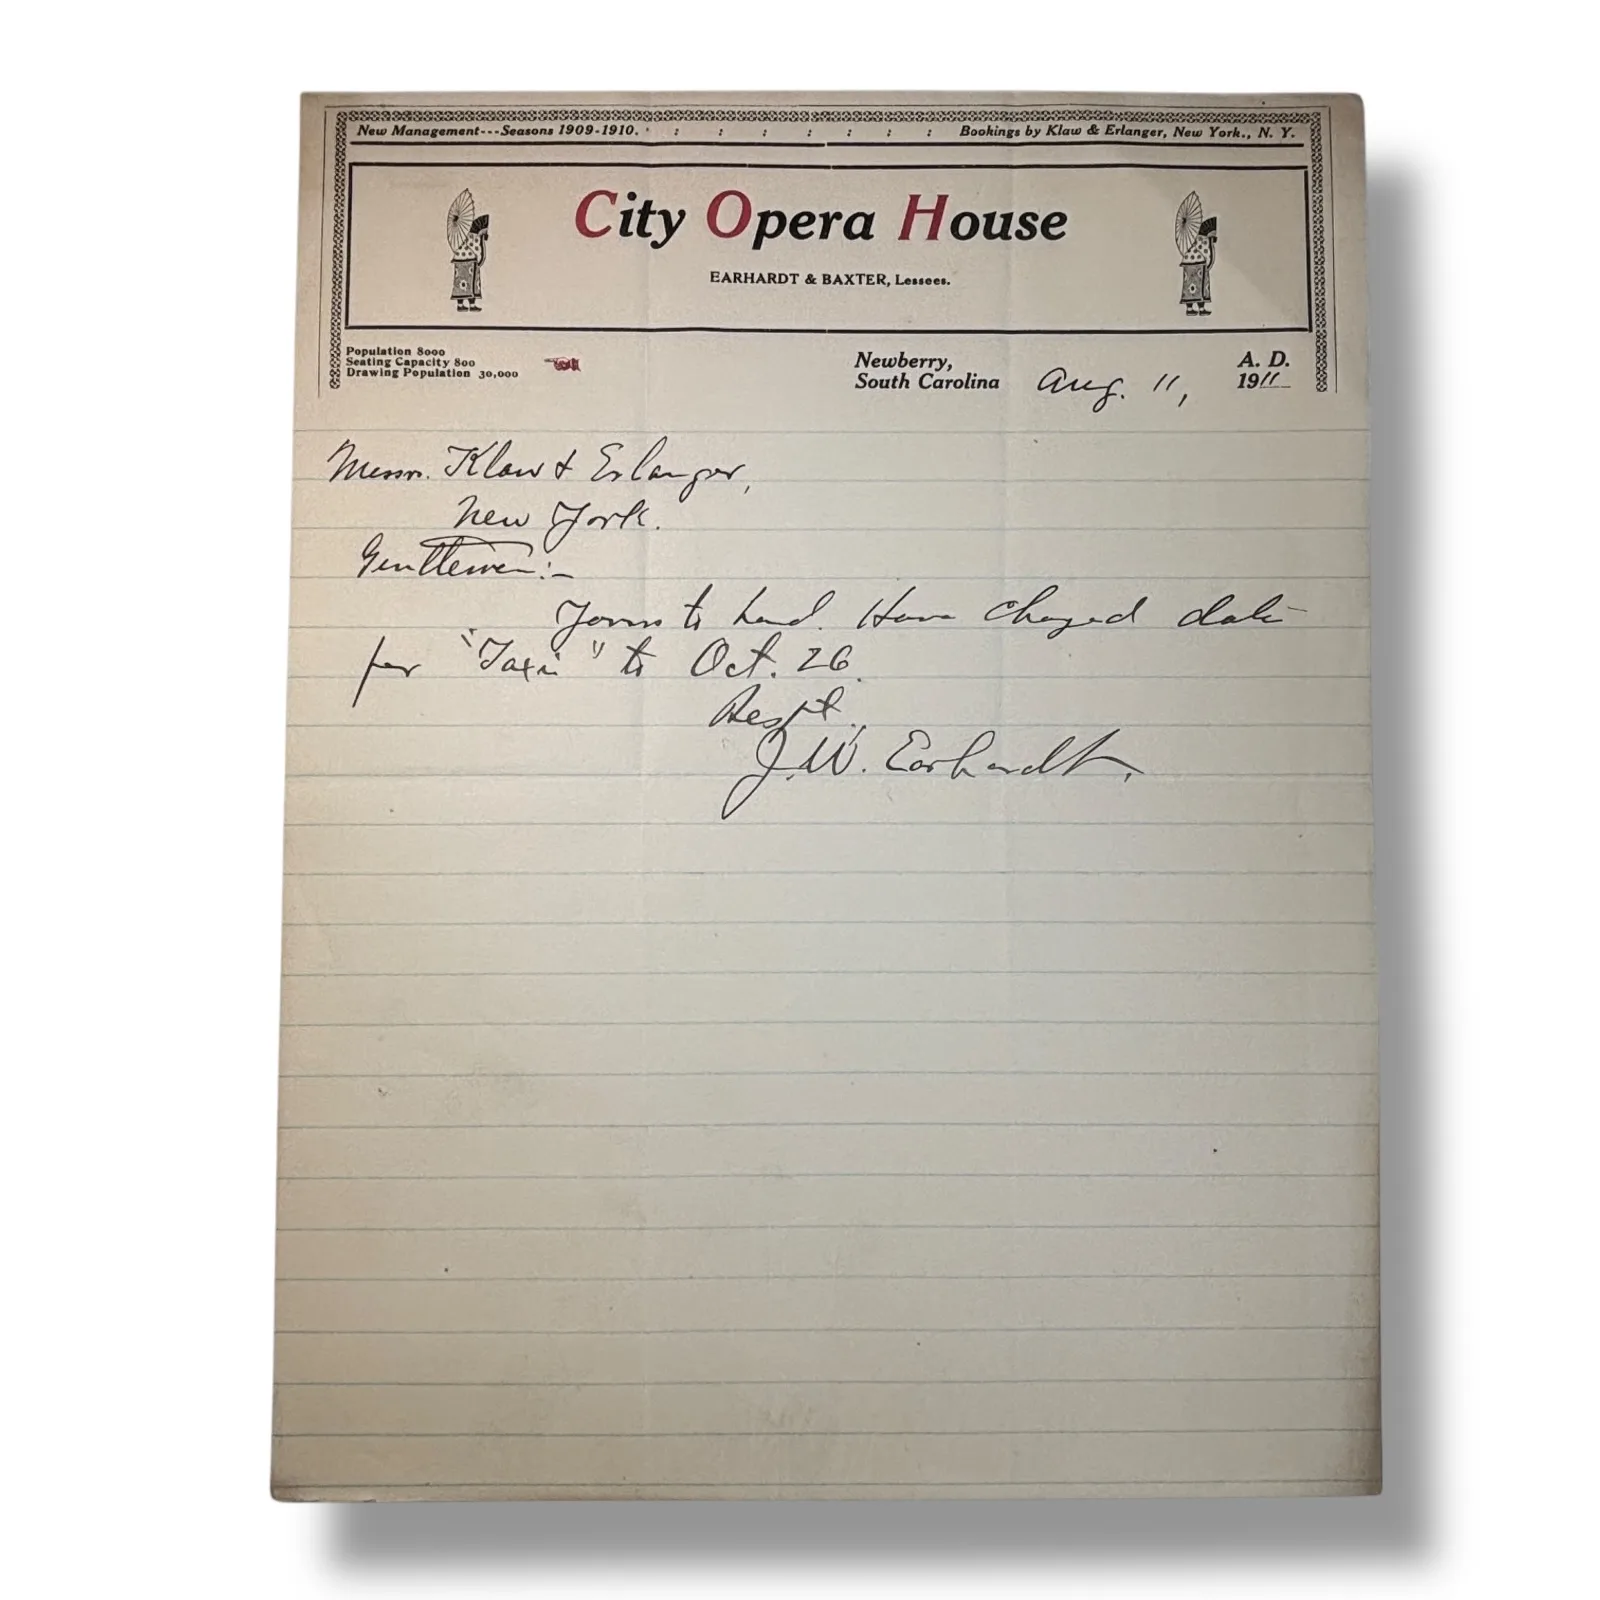 New Management---Seasons 1909-1910. : : : : : : : : Bookings by Klaw & Erlanger, New York., N. Y.
City Opera House
EARHARDT & BAXTER, Lessees.
Population 8000
Seating Capacity 800
Drawing Population 30,000
Newberry,
South Carolina Aug. 11,
A. D.
1911
Messrs. Klaw & Erlanger,
New York.
Gentlemen:-
Yours to hand. Have changed date
for "Taxi" to Oct. 26.
Resp't.,
J. W. Earhardt.